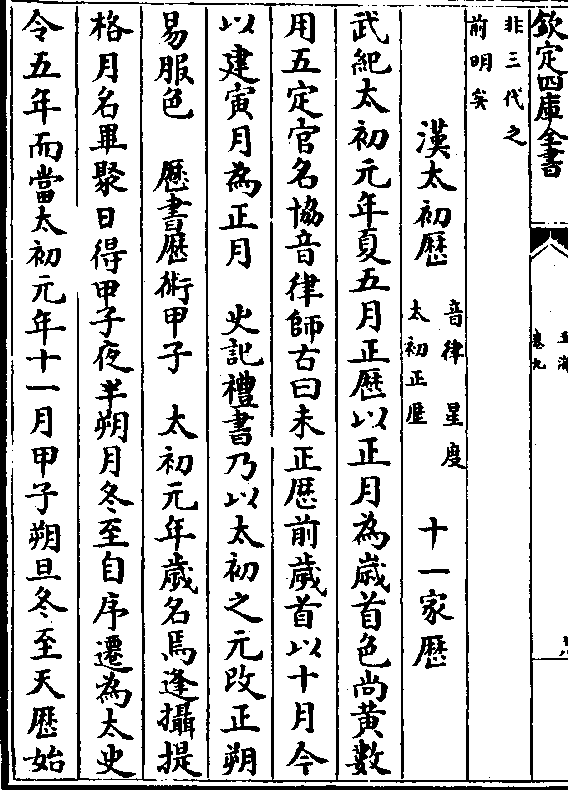 欽定四庫全書
卷九
非三代之
前明矣
漢太初歷 音律 星度 太初正歷 十一家歷
武紀太初元年夏五月正歷以正月為歲首色尚黃數
用五定官名協音律師古曰未正歷前歲首以十月今
以建寅月為正月 史記禮書乃以太初之元改正朔
易服色 歷書歷術甲子 太初元年歲名焉逢攝提
格月名畢聚日得甲子夜半朔月冬至自序遷為太史
令五年而當太初元年十一月甲子朔旦冬至天歷始